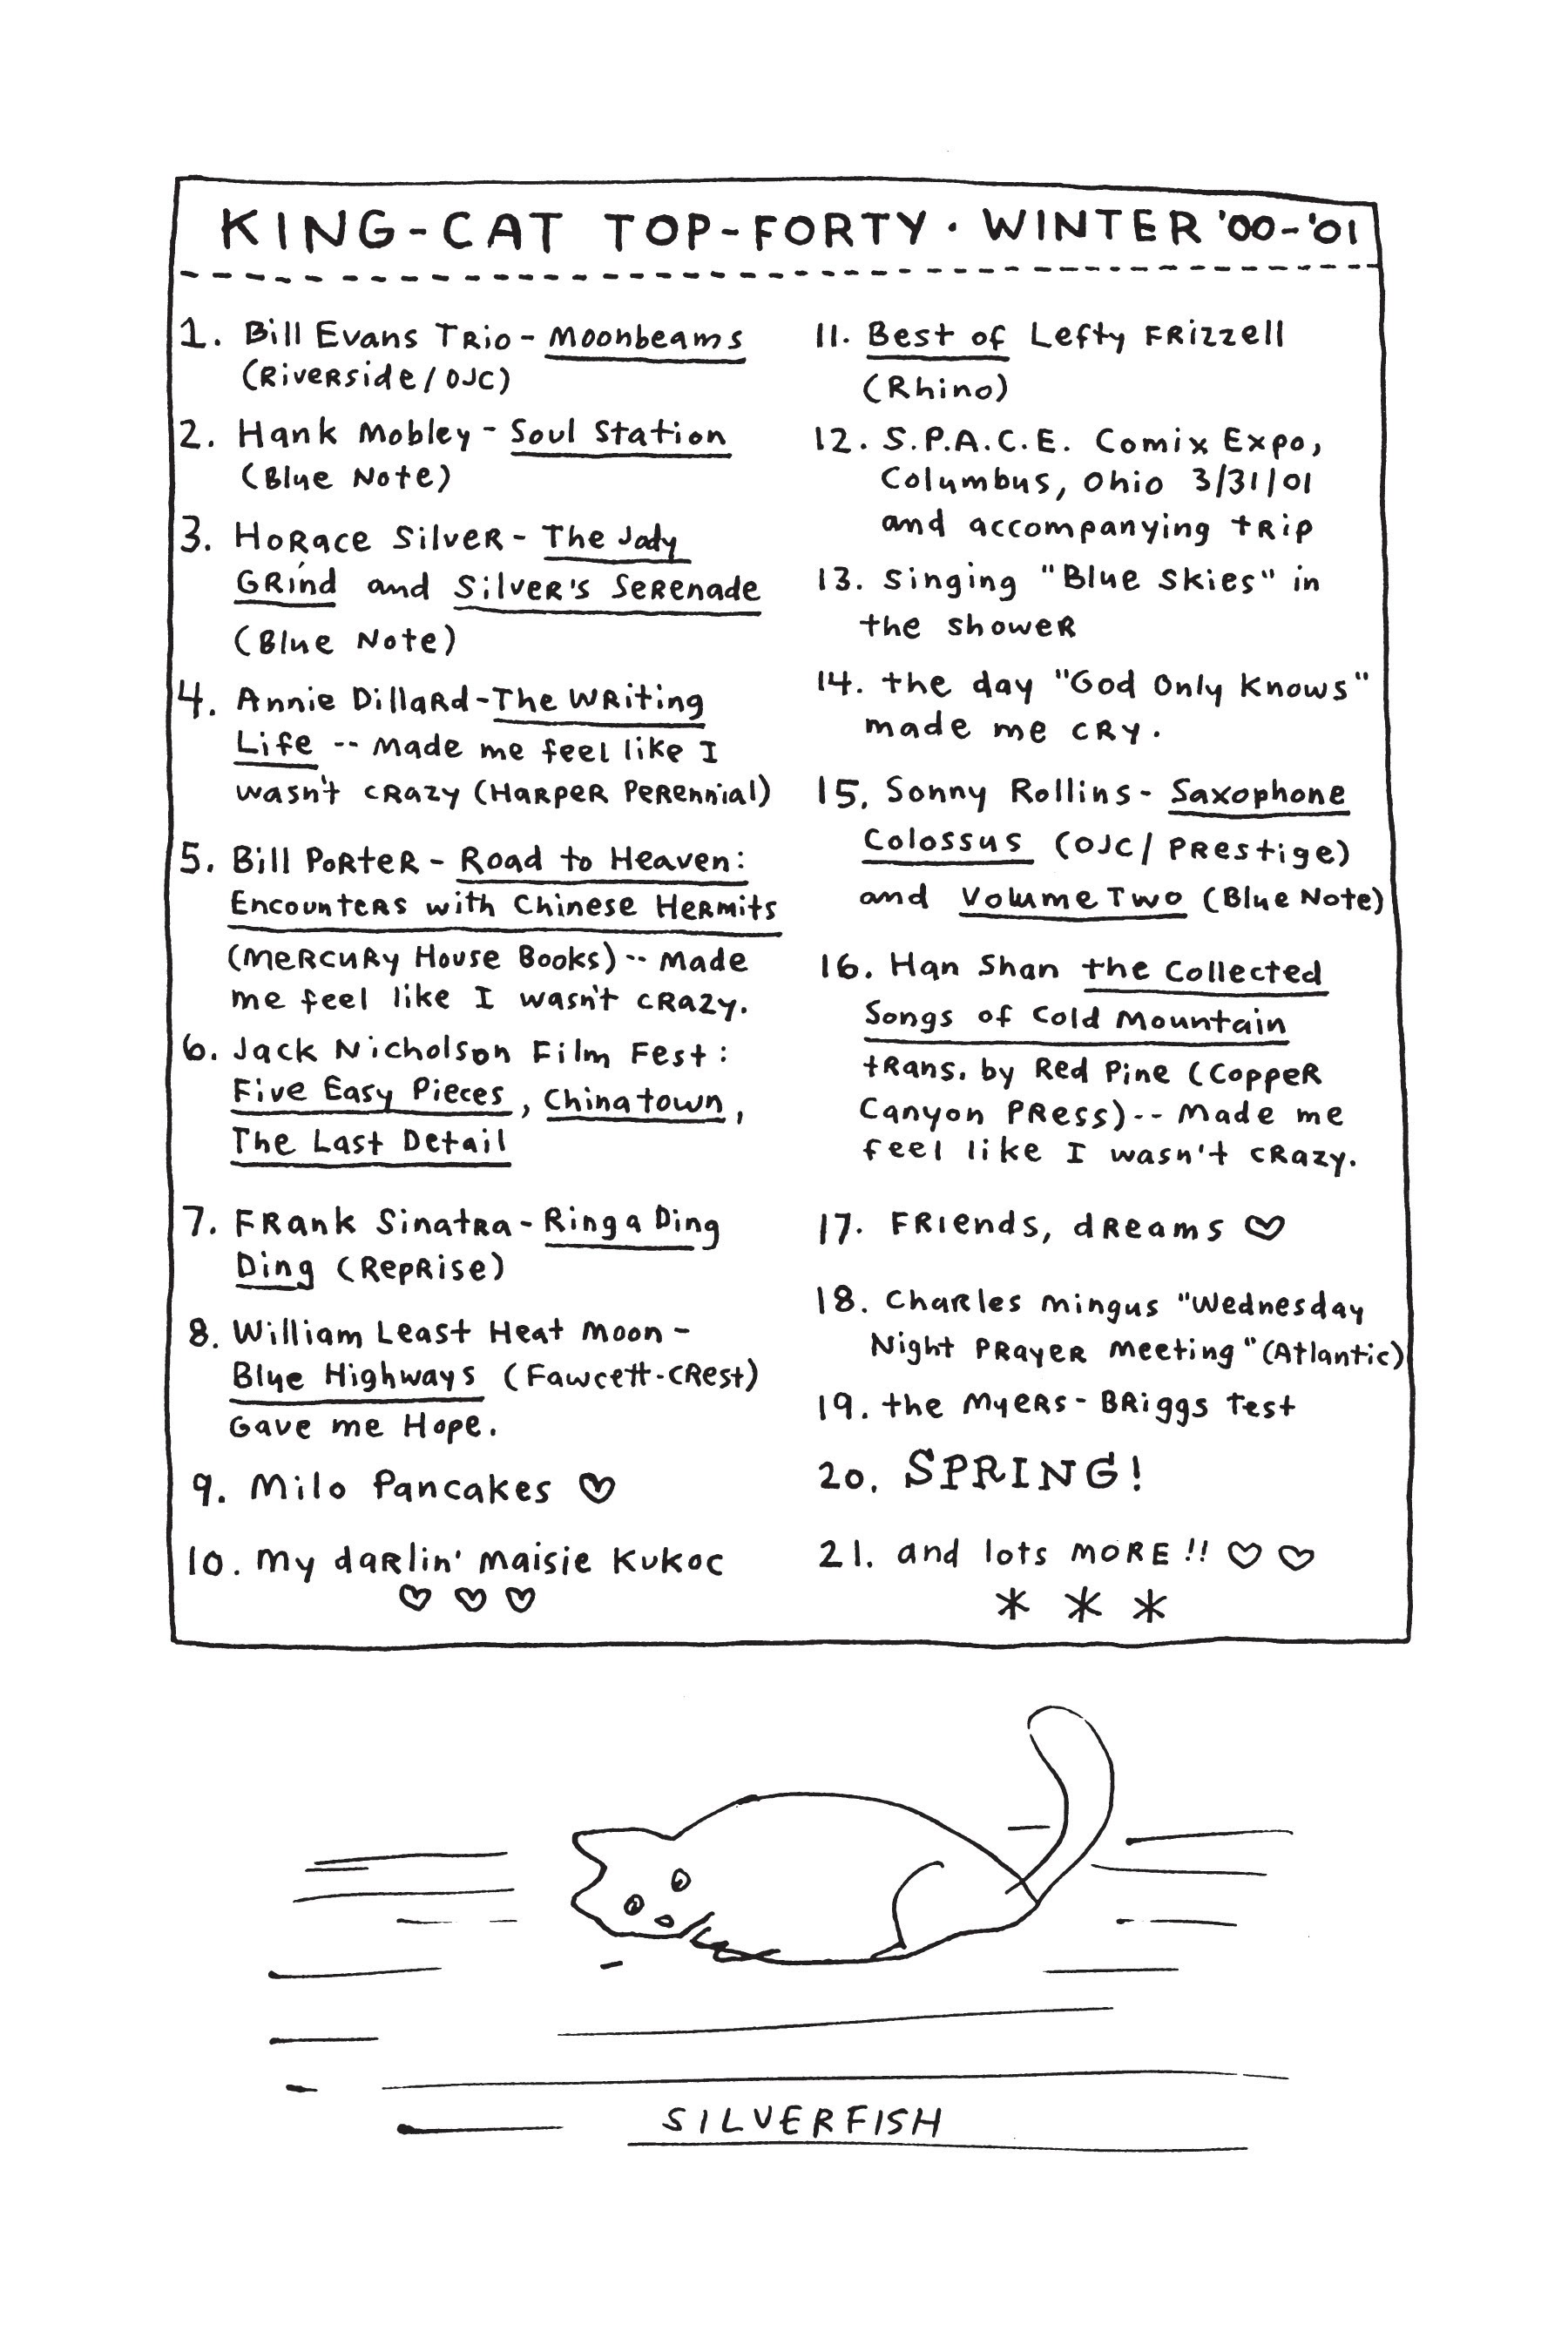 KING-CAT TOP-FORTY · WINTER '00-'01
1. Bill Evans Trio - Moonbeams
(Riverside/OJC)
2. Hank Mobley - Soul Station
(Blue Note)
3. Horace Silver - The Jody
Grind and Silver's Serenade
(Blue Note)
4. Annie Dillard - The Writing
Life -- Made me feel like I
wasn't crazy (Harper Perennial)
5. Bill Porter - Road to Heaven:
Encounters with Chinese Hermits
(Mercury House Books) -- Made
me feel like I wasn't crazy.
6. Jack Nicholson Film Fest:
Five Easy Pieces, Chinatown,
The Last Detail
7. Frank Sinatra - Ring a Ding
Ding (Reprise)
8. William Least Heat Moon -
Blue Highways (Fawcett-Crest)
Gave me Hope.
9. Milo Pancakes ♡
10. My darlin' Maisie Kukoc
♡ ♡ ♡
11. Best of Lefty Frizzell
(Rhino)
12. S.P.A.C.E. Comix Expo,
Columbus, Ohio 3/31/01
and accompanying trip
13. Singing "Blue Skies" in
the shower
14. the day "God Only Knows"
made me cry.
15. Sonny Rollins - Saxophone
Colossus (OJC/Prestige)
and Volume Two (Blue Note)
16. Han Shan the Collected
Songs of Cold Mountain
trans. by Red Pine (Copper
Canyon Press) -- Made me
feel like I wasn't crazy.
17. Friends, dreams ♡
18. Charles Mingus "Wednesday
Night Prayer Meeting" (Atlantic)
19. the Myers-Briggs Test
20. SPRING!
21. and lots MORE!! ♡ ♡
* * *
SILVERFISH